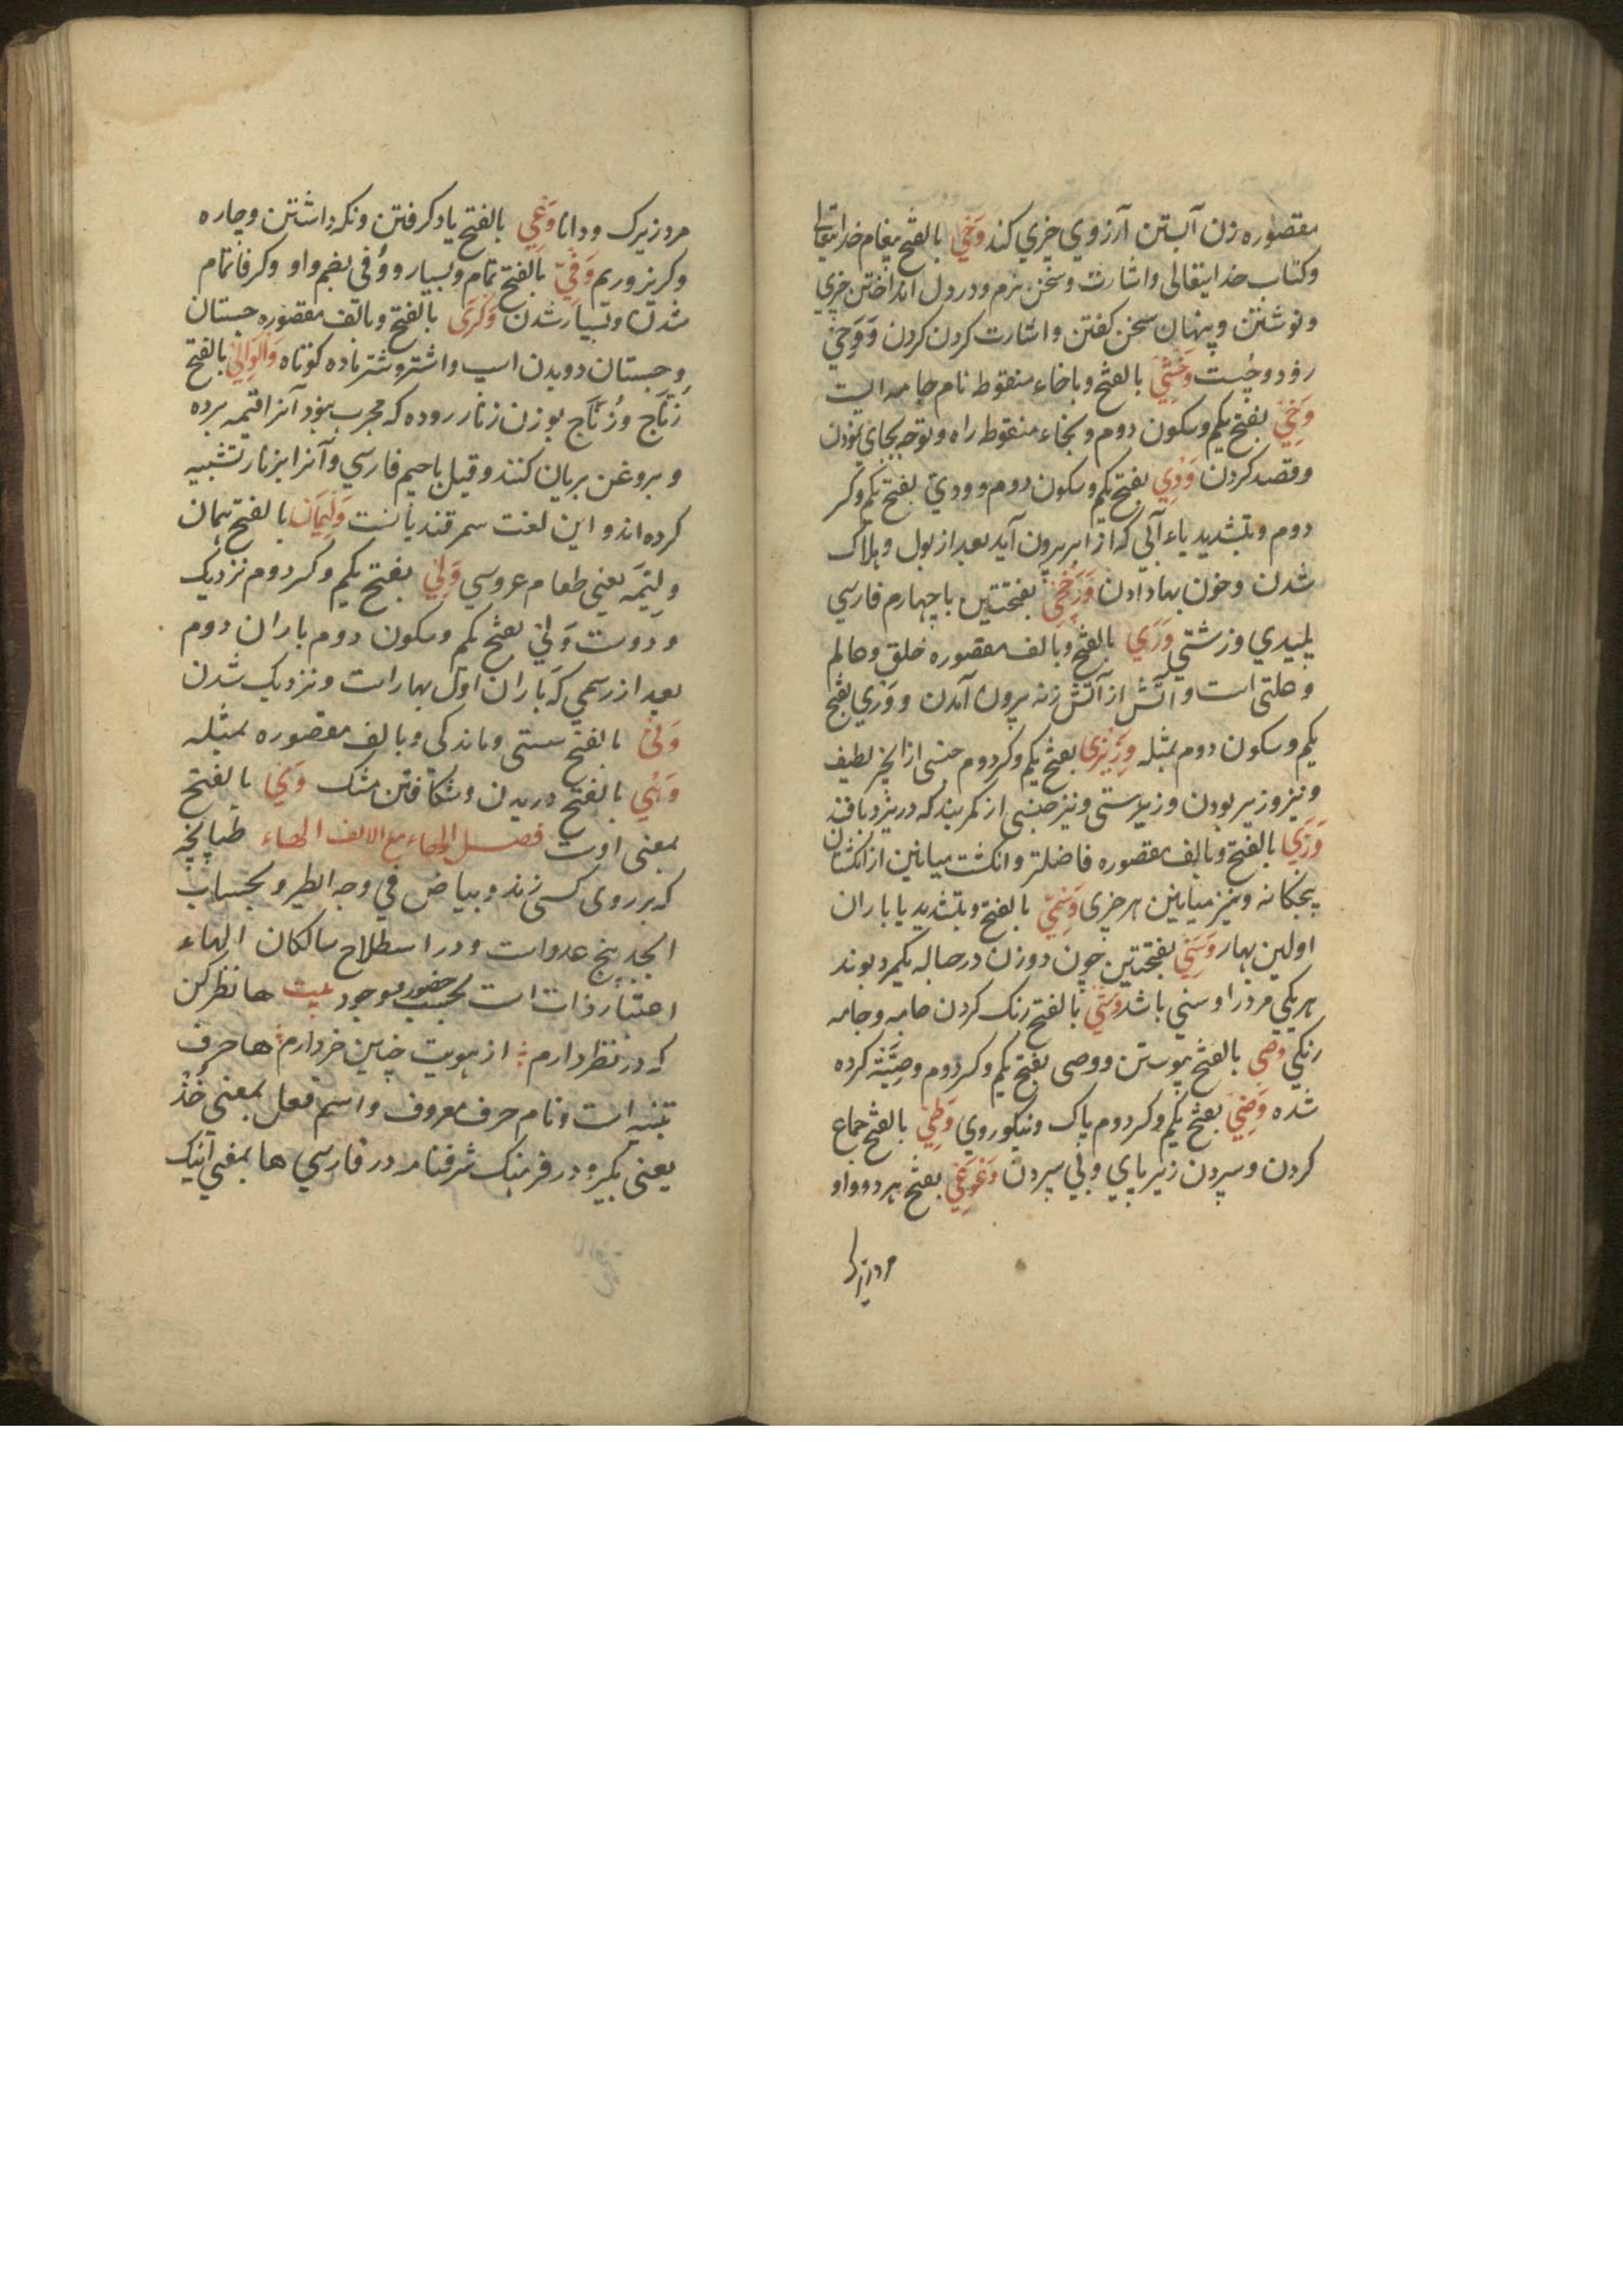 مقصوره زن آبستن آرزوي چيزي كند وَحْي بالفتح پيغام خدايتعالى
وكتاب خدايتعالى واشارت وسخن نرم ودر دل انداختن چيزي
ونوشتن وپنهان سخن كفتن واشارت كردن كردن وَوَحِيّ
زود وچست وَخْشِي بالفتح وباخاء منقوط نام جامه ايست
وَخْي بفتح يكم وسكون دوم وبخاء منقوط راه وتوجه بجاي نمودن
وقصد كردن وَدْي بفتح يكم وسكون دوم وودِيّ بفتح يكم وكسر
دوم وبتشديد ياء آبي كه از اير بيرون آيد بعد از بول وهلاك
شدن وخون بها دادن وَرَخْچِي بفتحتين باچهارم فارسي
پليدي وزشتي وَرَي بالفتح وبالف مقصوره خلق وعالم
وعلتى است وآتش از آتش زنه بيرون آمدن ووَرْي بفتح
يكم وسكون دوم بمثله وَزِيْرِي بفتح يكم وكسر دوم جنسى از انجير لطيف
ونيز وزير بودن وزيردستى ونيز جنسى از كمربند كه در يزد بافند
وَسَطَي بالفتح وبالف مقصوره فاضلتر وانكشت ميانين از انكشتان
پنجكانه ونيز ميانين هر چيزى وَسْمِيّ بالفتح وبتشديد يا باران
اولين بهار وَسَنِي بفتحتين چون دو زن در حباله يكمرد بوند
هر يكي مر ديكر را وسني باشد وَشْي بالفتح رنك كردن جامه وجامه
رنكي وصي بالفتح پيوستن ووصى بفتح يكم وكسر دوم وصِيَّت كرده
شده وَضِيّ بفتح يكم وكسر دوم پاك ونيكوروي وَطِي بالفتح جماع
كردن وسپردن زير پاي وپي سپردن وَعْوَعِي بفتح هر دو واو
مرد زيرك
مرد زيرك ودانا وَعْي بالفتح ياد كرفتن ونكه داشتن وچاره
وكريز وريم وَفِيّ بالفتح تمام وبسيار ووُفى بضم واو وكسر فا تمام
شدن وبسيار شدن وَكَرَى بالفتح وبالف مقصوره جستان
وجستان دويدن اسپ واشتر وشتر ماده كوتاه وَالْوَالِي بالفتح
زُنّاج وزُنّاج بوزن زنار روده كه مجرب بود آنرا قيمه برده
وبروغن بريان كنند وقيل باجيم فارسي وآنرا بزنار تشبيه
كرده اند واين لغت سمرقنديانست وَلِيْمَان بالفتح همان
وليْمَه يعني طعام عروسي وَلِيّ بفتح يكم وكسر دوم نزديك
ودوست وَلْي بفتح يكم وسكون دوم باران دوم
بعد از رسمي كه باران اول بهار است ونزديك شدن
وَنْيَ بالفتح سستى وماندكى وبالف مقصوره بمثله
وَهْي بالفتح دريدن وشكافتن مشك وَيْيَا بالفتح
بمعنى اوست فصل الهاء مع الالف الهاء طپانچه
كه بر روى كسى زنند وبياض في وجه الطير وبحساب
ابجد پنج عدد است ودر اسطلاح سالكان الهاء
اعتبار ذات است بحسب حضور موجود بيت ها نظر كن
كه در نظر دارم از هويت چنين خبر دارم ها حرف
تنبيه است ونام حرف معروف واسم فعل بمعنى خُذْ
يعنى بكير ودر فرهنك شرفنامه در فارسي ها بمعني اينك